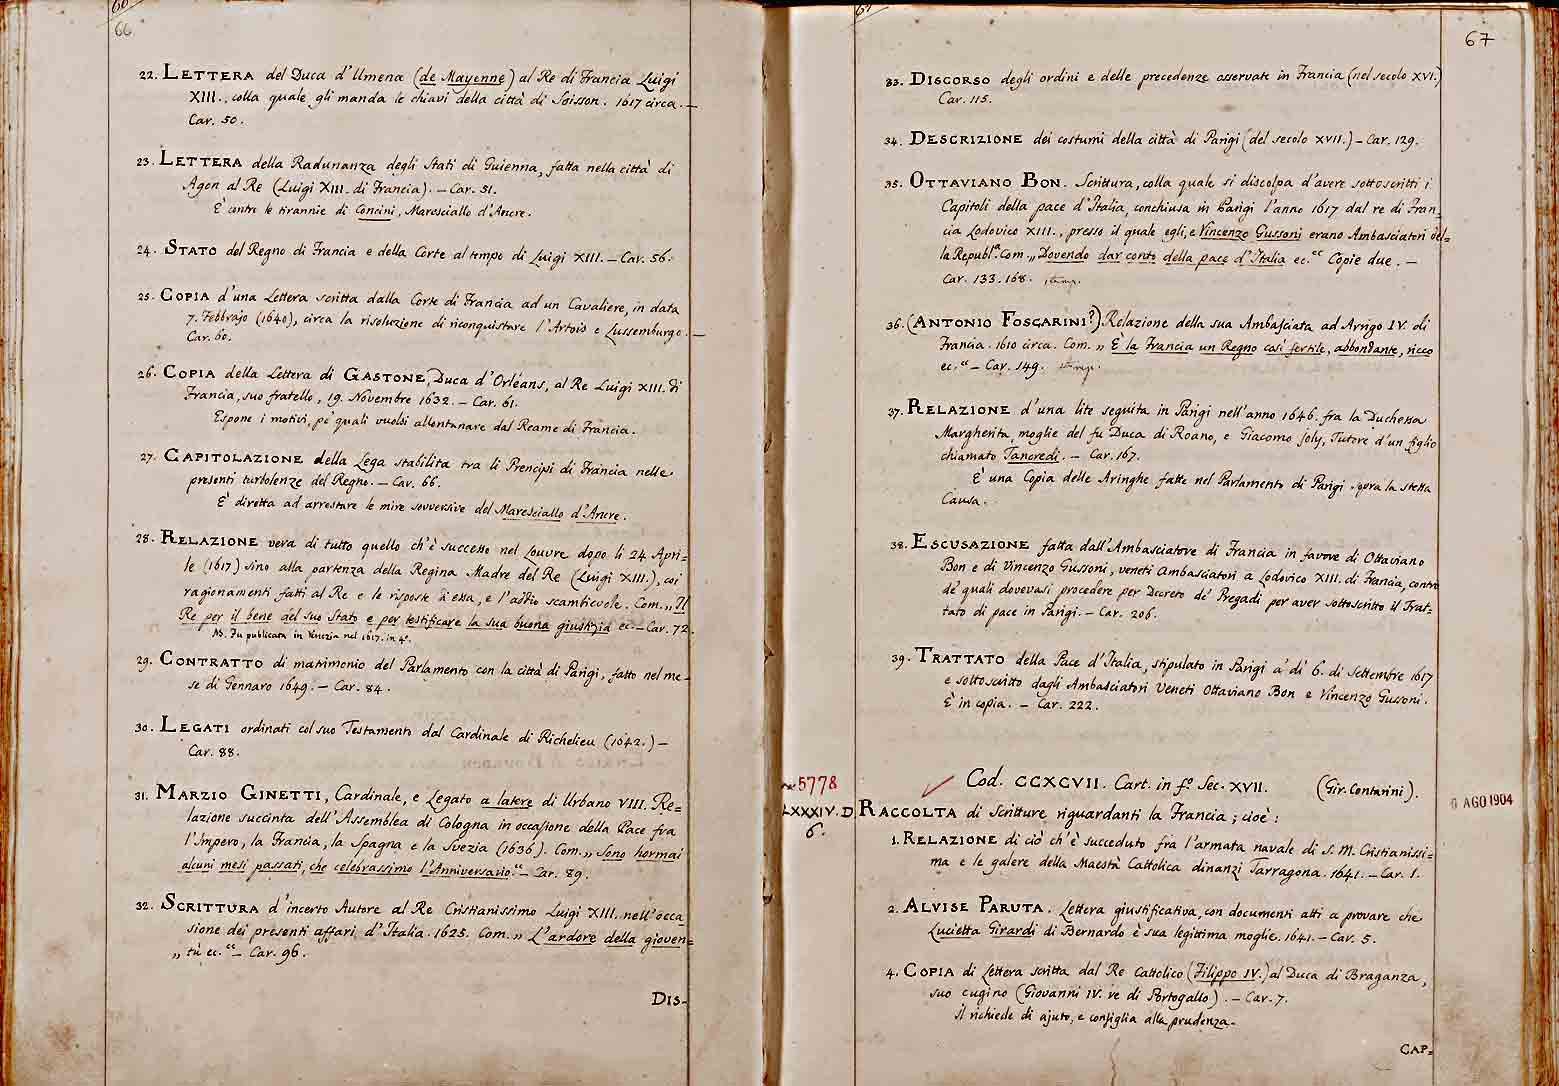 66
66
22. LETTERA del Duca d'Umena (de Mayenne) al Re di Francia Luigi
XIII., colla quale gli manda le chiavi della città di Soisson. 1617 circa. —
Car. 50.
23. LETTERA della Radunanza degli Stati di Guienna, fatta nella città di
Agen al Re (Luigi XIII. di Francia). — Car. 51.
È contro le tirannie di Concini, Maresciallo d'Ancre.
24. STATO del Regno di Francia e della Corte al tempo di Luigi XIII. — Car. 56.
25. COPIA d'una Lettera scritta dalla Corte di Francia ad un Cavaliere, in data
7. Febbrajo (1640), circa la risoluzione di riconquistare l'Artois e Lussemburgo. —
Car. 60.
26. COPIA della Lettera di GASTONE, Duca d'Orléans, al Re Luigi XIII. di
Francia, suo fratello, 19. Novembre 1632. — Car. 61.
Espone i motivi, pe' quali vuolsi allontanare dal Reame di Francia.
27. CAPITOLAZIONE della Lega stabilita tra li Prencipi di Francia nelle
presenti turbolenze del Regno. — Car. 66.
È diretta ad arrestare le mire sovversive del Maresciallo d'Ancre.
28. RELAZIONE vera di tutto quello ch'è successo nel Louvre dopo li 24 Apri=
le (1617) sino alla partenza della Regina Madre del Re (Luigi XIII.), coi
ragionamenti fatti al Re e le risposte di essa, e l'addio scambievole. Com. „ Il
Re per il bene del suo Stato e per testificare la sua buona giustizia ec. — Car. 72.
NB. Fu publicata in Venezia nel 1617. in 4°.
29. CONTRATTO di matrimonio del Parlamento con la città di Parigi, fatto nel me=
se di Gennaro 1649. — Car. 84.
30. LEGATI ordinati col suo Testamento dal Cardinale di Richelieu (1642.) —
Car. 88.
31. MARZIO GINETTI, Cardinale, e Legato a latere di Urbano VIII. Re=
lazione succinta dell'Assemblea di Cologna in occasione della Pace fra
l'Impero, la Francia, la Spagna e la Svezia (1636). Com. „ Sono hormai
alcuni mesi passati, che celebrassimo l'Anniversario." — Car. 89.
32. SCRITTURA d'incerto Autore al Re Cristianissimo Luigi XIII. nell'occa
sione dei presenti affari d'Italia. 1625. Com. „ L'ardore della gioven=
„ tù ec." — Car. 96.
DIS-
67
67
33. DISCORSO degli ordini e delle precedenze osservate in Francia (nel secolo XVI.)
Car. 115.
34. DESCRIZIONE dei costumi della città di Parigi (del secolo XVII.) — Car. 129.
35. OTTAVIANO BON. Scrittura, colla quale si discolpa d'avere sottoscritti i
Capitoli della pace d'Italia, conchiusa in Parigi l'anno 1617 dal re di Fran=
cia Lodovico XIII., presso il quale egli, e Vincenzo Gussoni erano Ambasciatori del=
la Republ.ª Com. „ Dovendo dar conto della pace d'Italia ec." Copie due. —
Car. 133. 168. stamp.
36. (ANTONIO FOSCARINI?) Relazione della sua Ambasciata ad Arrigo IV. di
Francia. 1610 circa. Com. „ È la Francia un Regno così fertile, abbondante, ricco
ec." — Car. 149. stamp.
37. RELAZIONE d'una lite seguita in Parigi nell'anno 1646. fra la Duchessa
Margherita, moglie del fu Duca di Roano, e Giacomo Joly, Tutore d'un figlio
chiamato Tancredi. — Car. 167.
È una Copia delle Aringhe fatte nel Parlamento di Parigi sopra la stessa
Causa.
38. ESCUSAZIONE fatta dall'Ambasciatore di Francia in favore di Ottaviano
Bon e di Vincenzo Gussoni, veneti Ambasciatori a Lodovico XIII. di Francia, contro
de' quali dovevasi procedere per Decreto de' Pregadi per aver sottoscritto il Trat=
tato di pace in Parigi. — Car. 206.
39. TRATTATO della Pace d'Italia, stipulato in Parigi a' dì 6. di Settembre 1617
e sottoscritto dagli Ambasciatori Veneti Ottaviano Bon e Vincenzo Gussoni.
È in copia. — Car. 222.
5778
Cod. CCXCVII. Cart. in f.º Sec. XVII. (Gir. Contarini).
6 AGO 1904
LXXXIV. D
6.
RACCOLTA di Scritture riguardanti la Francia; cioè:
1. RELAZIONE di ciò ch'è succeduto fra l'armata navale di S. M. Cristianissi=
ma e le galere della Maestà Cattolica dinanzi Tarragona. 1641. — Car. 1.
2. ALVISE PARUTA. Lettera giustificativa, con documenti atti a provare che
Lucietta Girardi di Bernardo è sua legittima moglie. 1641. — Car. 5.
4. COPIA di Lettera scritta dal Re Cattolico (Filippo IV.) al Duca di Braganza,
suo cugino (Giovanni IV. re di Portogallo). — Car. 7.
Il richiede di ajuto, e consiglia alla prudenza.
CAP=